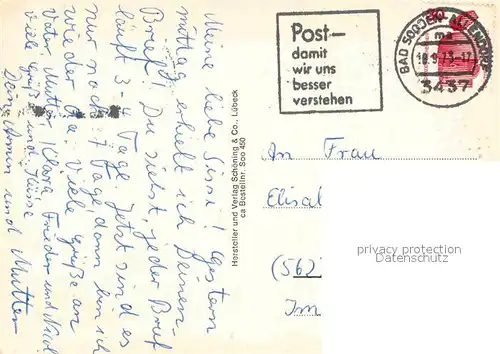 Meine liebe Sissi! Gestern
mittag erhielt ich Deinen
Brief! Du siehst, jeder Brief
läuft 3-4 Tage. Jetzt sind es
nur noch 7 Tage, dann bin ich
wieder da. Viele Grüße an
Vater, Mutter, Klara, Frieder und Nicol
Viele Grüße und Küsse
Dein Armin und Mutter
Hersteller und Verlag Schöning & Co., Lübeck
ca Bestellnr. Soo 450
Post–
damit
wir uns
besser
verstehen
BAD SOODEN-ALLENDORF
18.9.73-17
3437
An Frau
Elisa
(562
Im
privacy protection